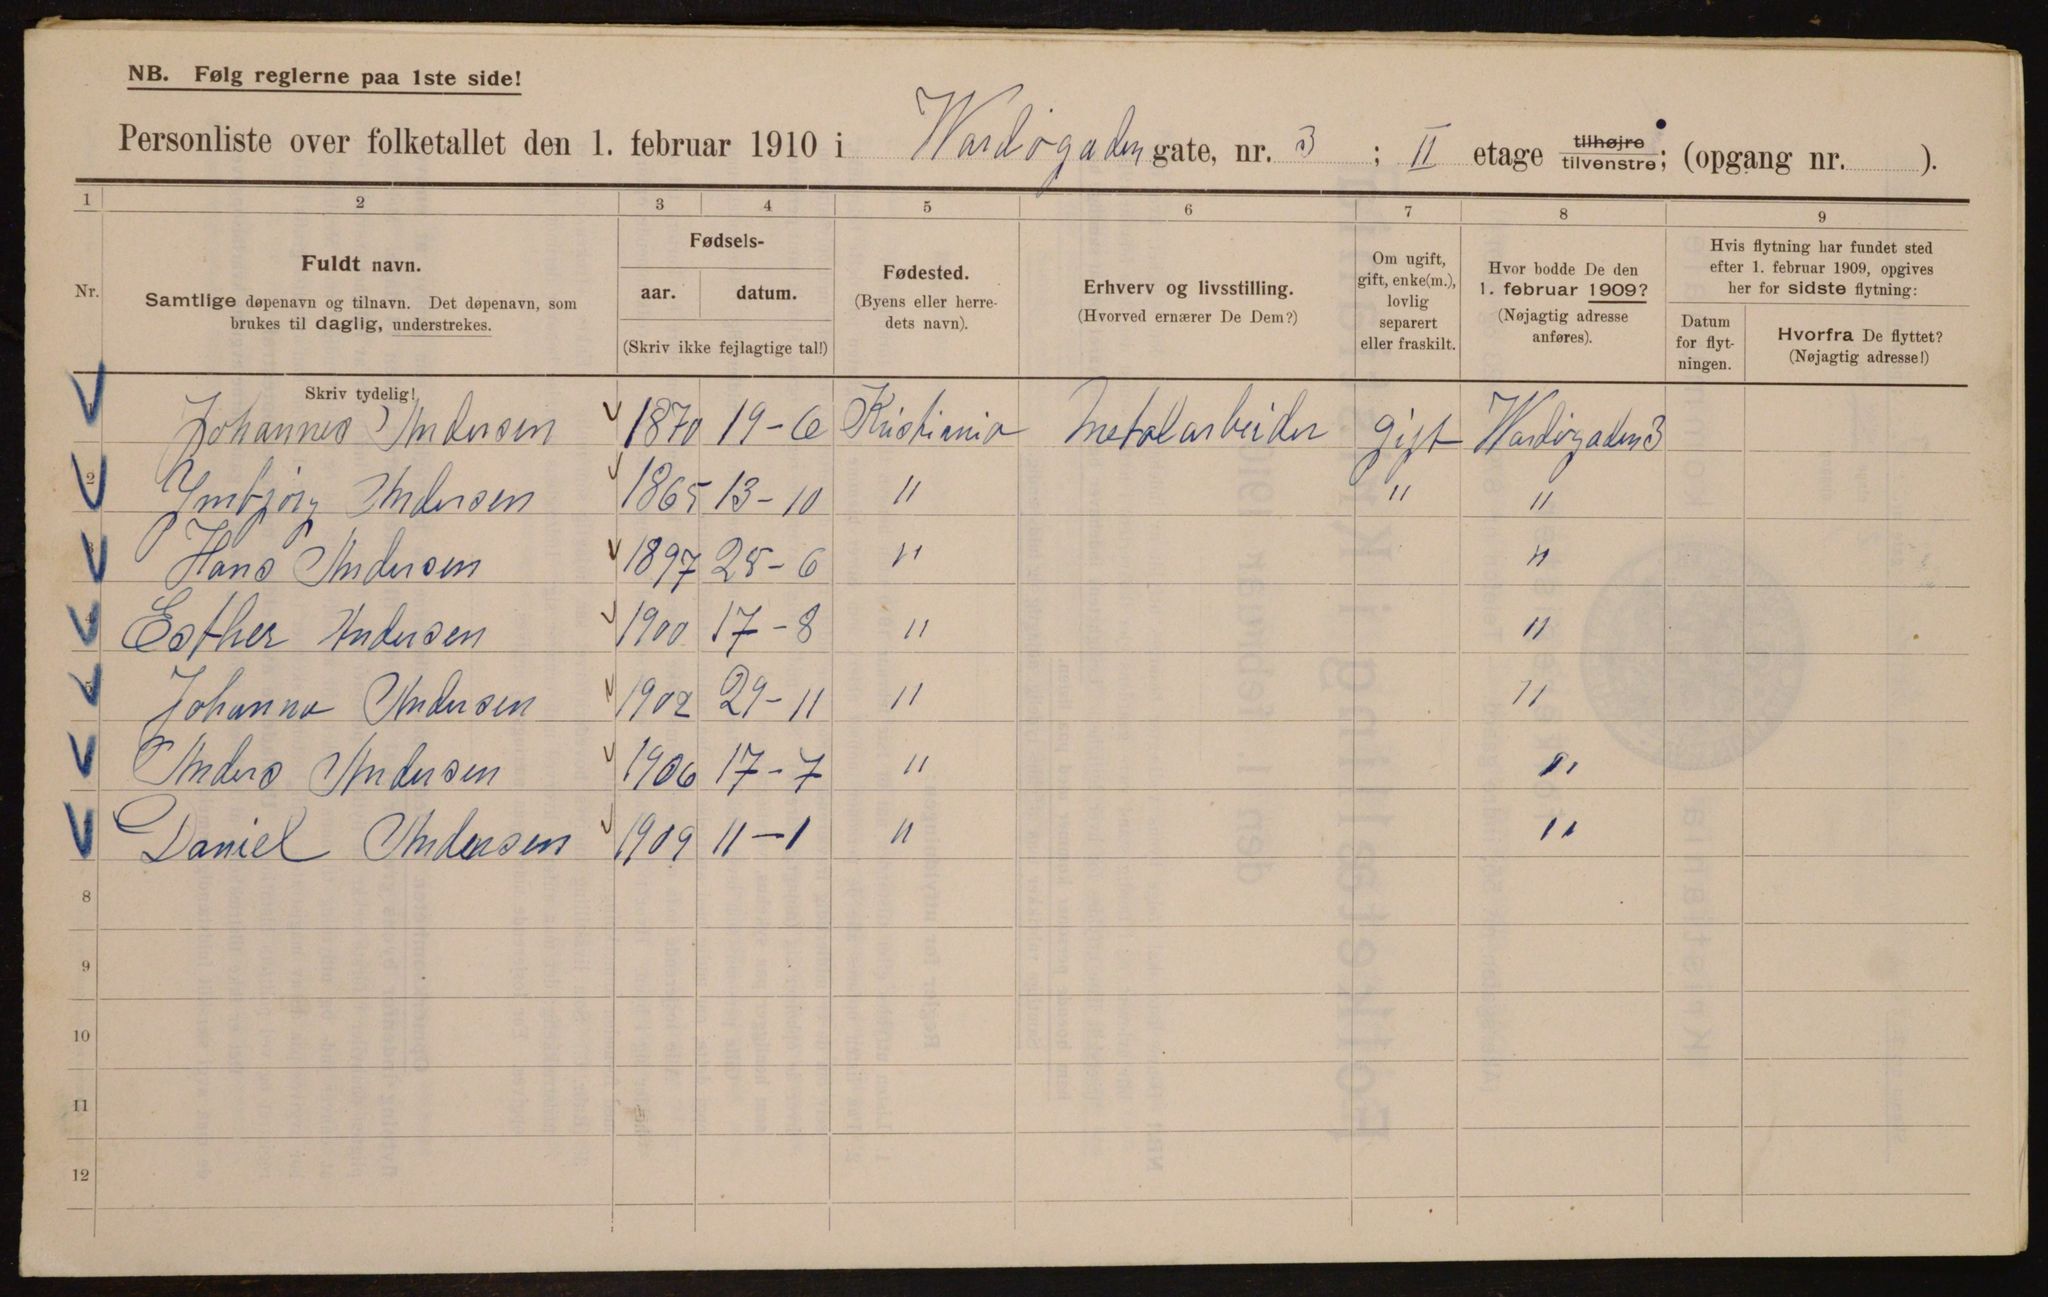 NB. Følg reglerne paa 1ste side!
Personliste over folketallet den 1. februar 1910 i Wardøgaden gate, nr. 3 ; II etage tilhøjre tilvenstre; (opgang nr. ).
1 2 3 4 5 6 7 8 9
Nr.
Fuldt navn.
Samtlige døpenavn og tilnavn. Det døpenavn, som
brukes til daglig, understrekes.
Fødsels-
aar. datum.
(Skriv ikke fejlagtige tal!)
Fødested.
(Byens eller herre-
dets navn).
Erhverv og livsstilling.
(Hvorved ernærer De Dem?)
Om ugift,
gift, enke(m.),
lovlig
separert
eller fraskilt.
Hvor bodde De den
1. februar 1909?
(Nøjagtig adresse
anføres).
Hvis flytning har fundet sted
efter 1. februar 1909, opgives
her for sidste flytning:
Datum
for flyt-
ningen.
Hvorfra De flyttet?
(Nøjagtig adresse!)
Skriv tydelig!
Johannes Andersen 1870 19-6 Kristiania Metalarbeider gift Wardøgaden 3
2 Ingbjørg Andersen 1865 13-10 " " "
3 Hans Andersen 1897 25-6 " "
4 Esther Andersen 1900 17-8 " "
5 Johanna Andersen 1902 29-11 " "
Anders Andersen 1906 17-7 " "
Daniel Andersen 1909 11-1 " "
8
9
10
11
12